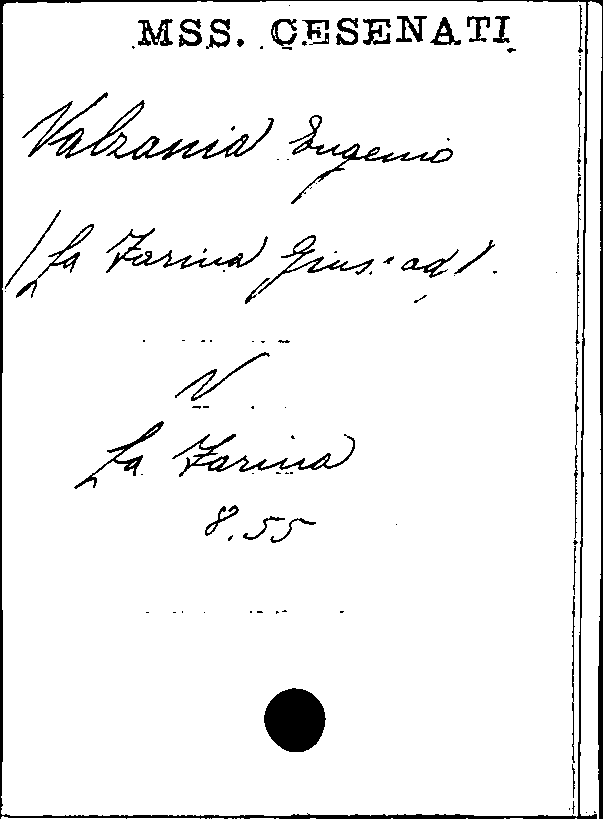 MSS. CESENATI
Valzania Eugenio
/La Farina Gius. ad/.
V
La Farina
8.55